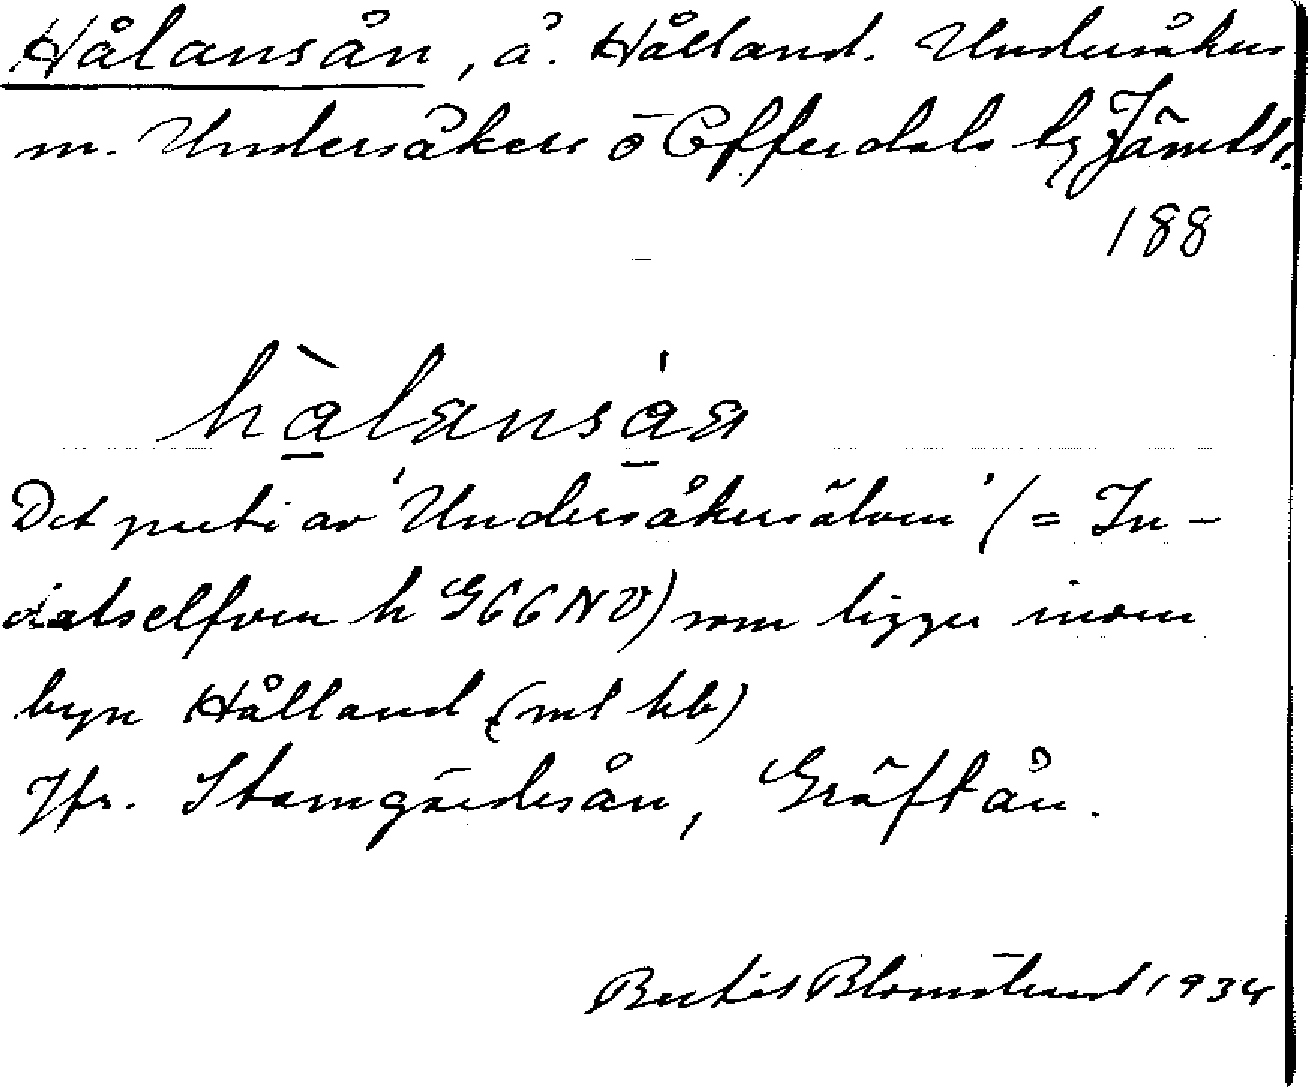 Hålansån, å. Hålland. Undersåkers
sn. Undersåkers o Offerdals tg Jämtl.
188
hålansåa
Det parti av 'Undersåkersälven' (= In-
dalselfven h G66NV) som ligger inom
byn Hålland (ml kb)
Jfr. Stamgärdesån, Gräftån.
Bertil Blomstrand 1934